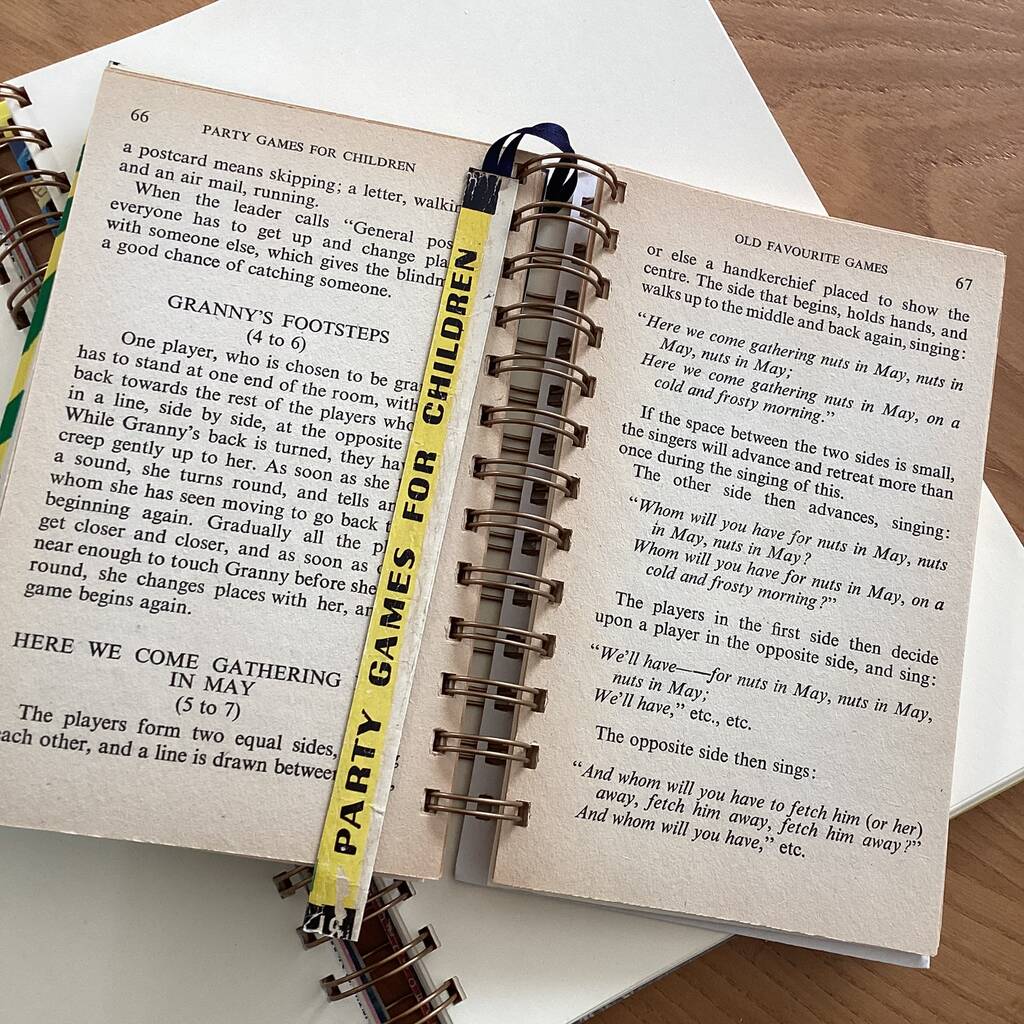 66
PARTY GAMES FOR CHILDREN
a postcard means skipping; a letter,
and an air mail, running.
When the leader calls "General
everyone has to get up and change
with someone else, which gives the
a good chance of catching someone.
GRANNY'S FOOTSTEPS
(4 to 6)
One player, who is chosen to be
has to stand at one end of the room,
back towards the rest of the players
in a line, side by side, at the opposite
While Granny's back is turned, they
creep gently up to her. As soon as she
a sound, she turns round, and tells
whom she has seen moving to go back
beginning again. Gradually all the
get closer and closer, and as soon as
near enough to touch Granny before she
round, she changes places with her,
game begins again.
HERE WE COME GATHERING
IN MAY
(5 to 7)
The players form two equal sides,
each other, and a line is drawn
PARTY GAMES FOR CHILDREN
OLD FAVOURITE GAMES
67
or else a handkerchief placed to show the
centre. The side that begins, holds hands, and
walks up to the middle and back again, singing:
"Here we come gathering nuts in May, nuts in
May, nuts in May;
Here we come gathering nuts in May, on a
cold and frosty morning."
If the space between the two sides is small,
the singers will advance and retreat more than
once during the singing of this.
The other side then advances, singing:
"Whom will you have for nuts in May, nuts
in May, nuts in May?
Whom will you have for nuts in May, on a
cold and frosty morning?"
The players in the first side then decide
upon a player in the opposite side, and sing:
"We'll have——for nuts in May, nuts in May,
nuts in May;
We'll have," etc., etc.
The opposite side then sings:
"And whom will you have to fetch him (or her)
away, fetch him away, fetch him away?"
And whom will you have," etc.